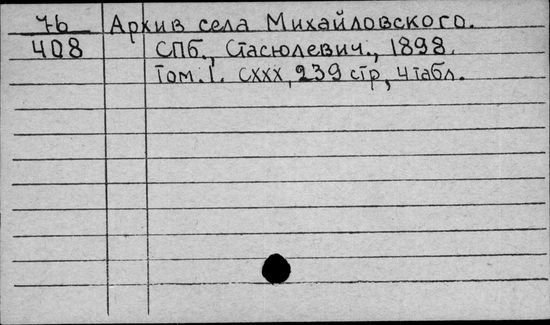 7б Архив села Михайловского.
408 СПб., Стасюлевич., 1898.
Том. I. CXXX, 239 стр., 4 табл.